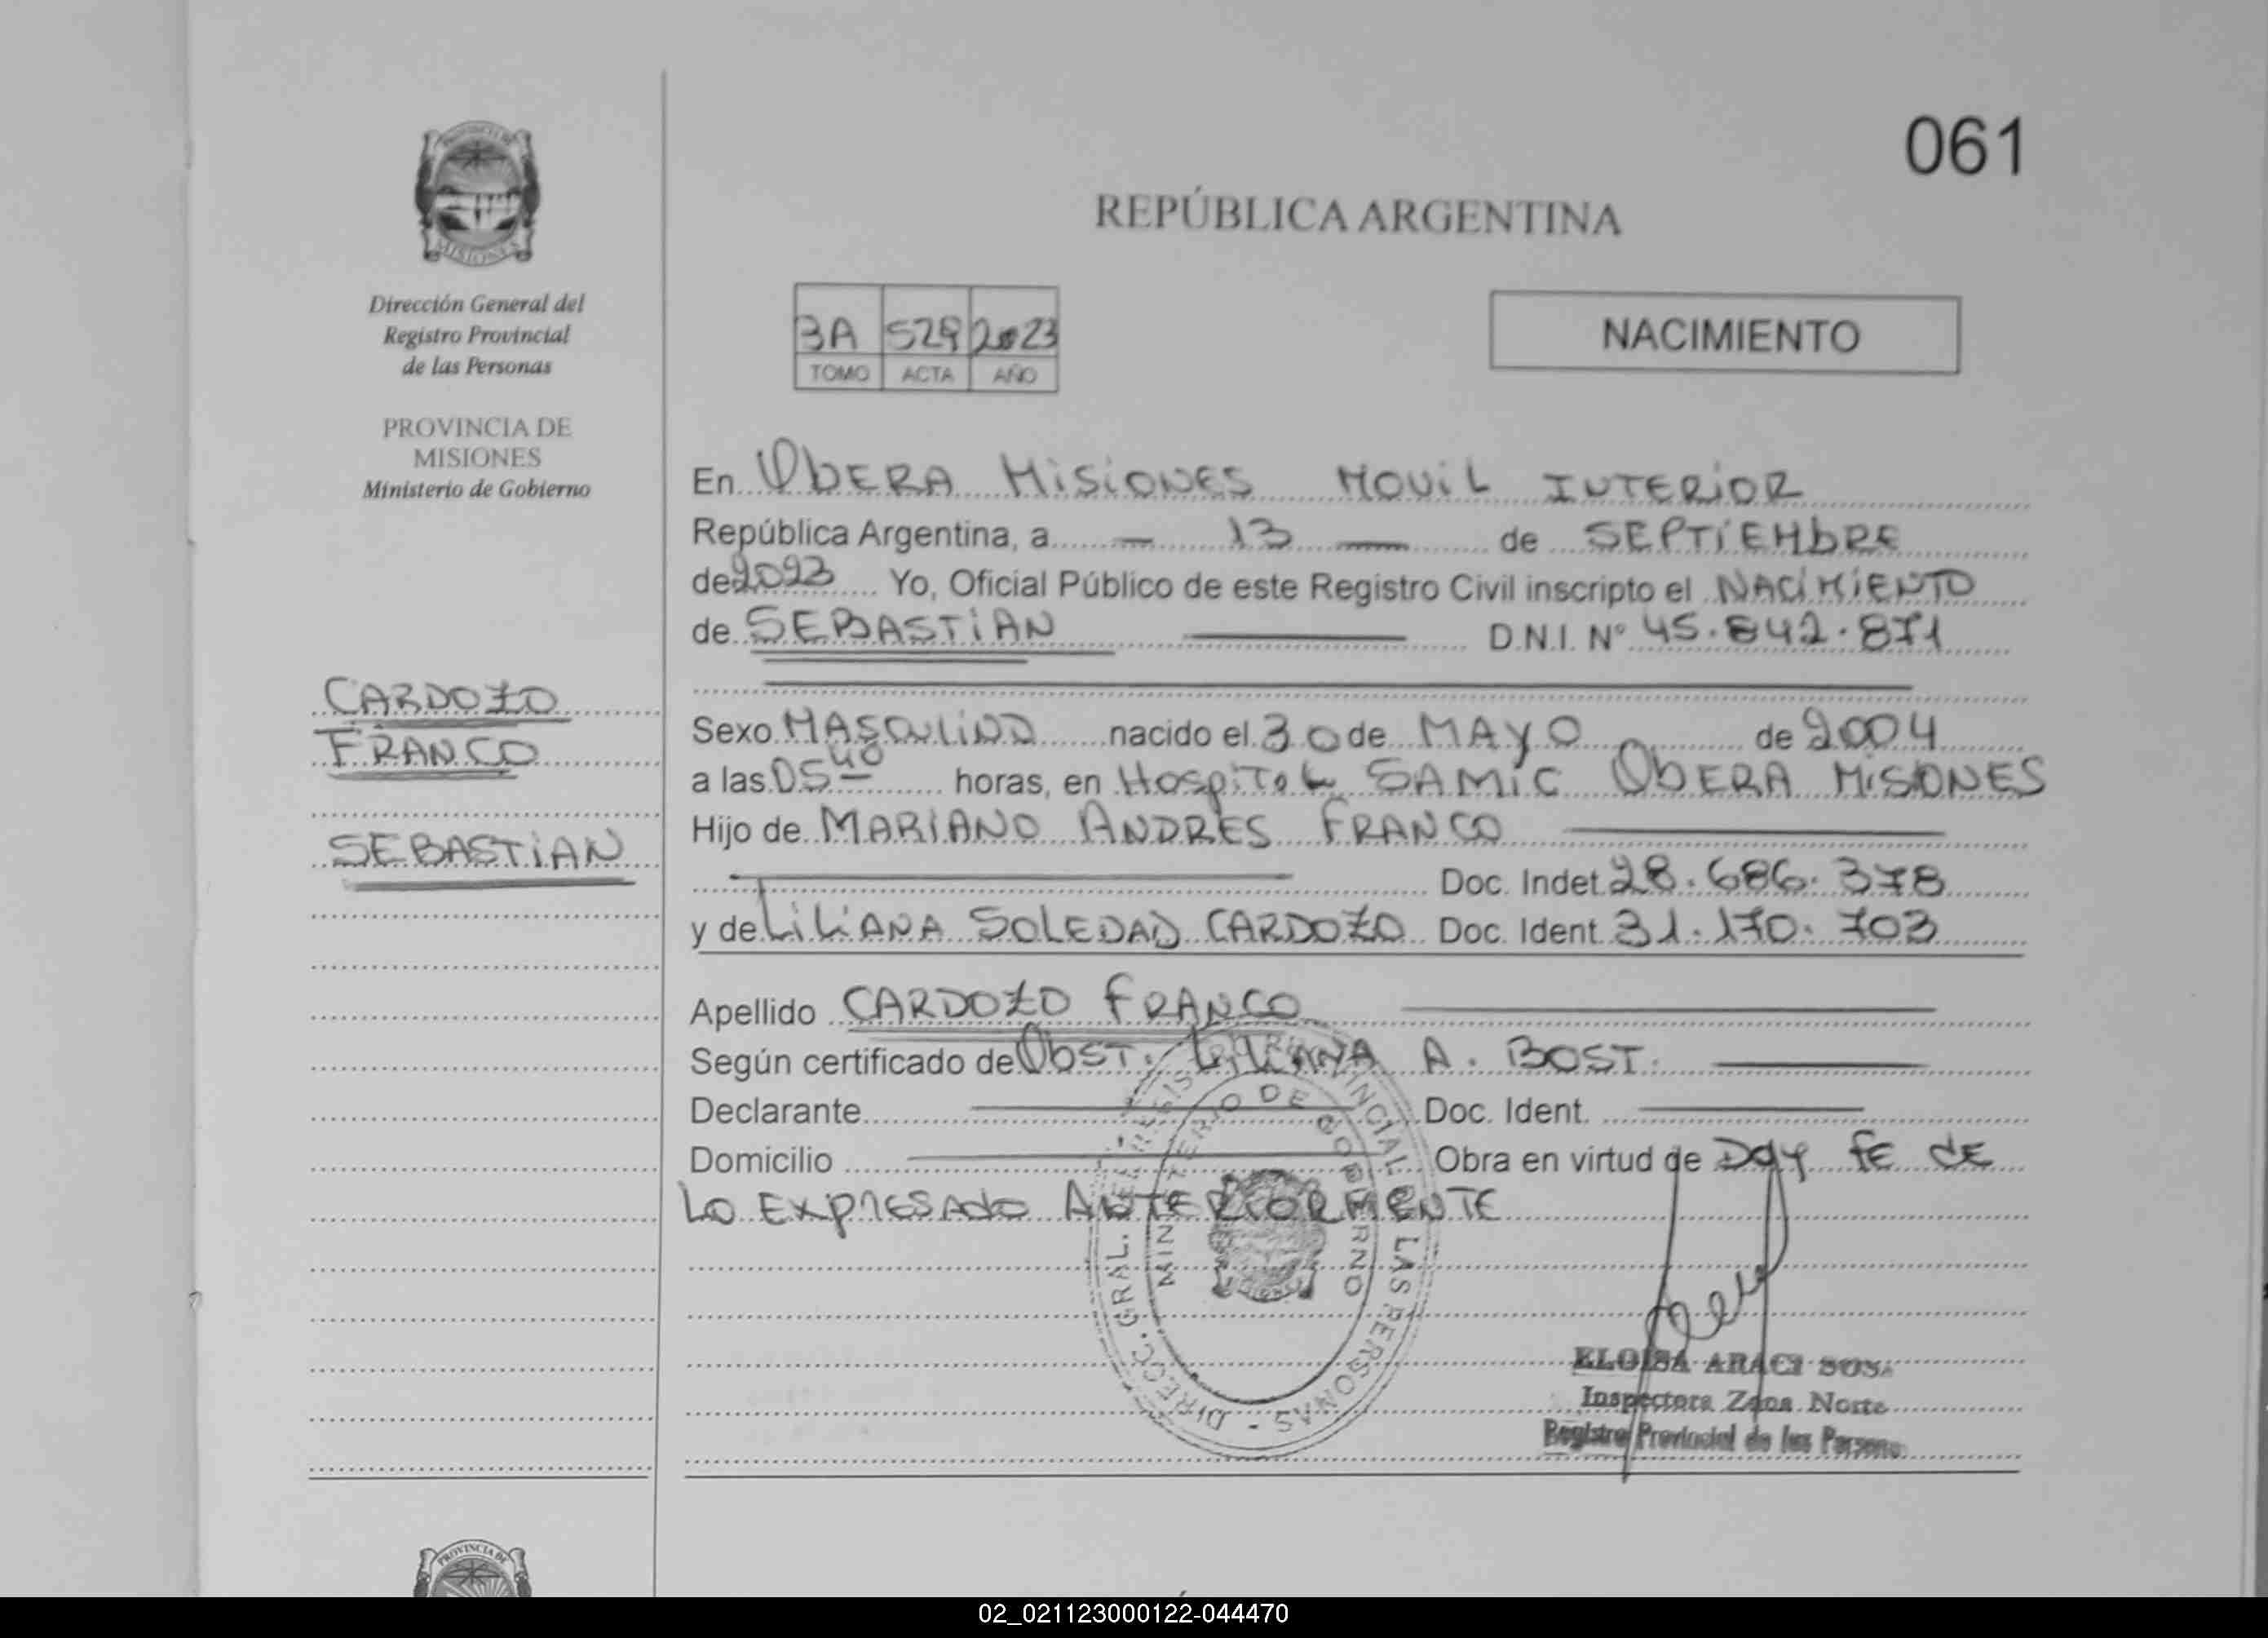 061
PROVINCIA DE
MISIONES
Dirección General del
Registro Provincial
de las Personas
PROVINCIA DE
MISIONES
Ministerio de Gobierno
CARDOZO
FRANCO
SEBASTIAN
REPÚBLICA ARGENTINA
3A 529 2023
TOMO ACTA AÑO
NACIMIENTO
En ObERA MiSiONES MOViL INTERiOR
República Argentina, a — 13 — de SEPTiEMbRE
de 2023 Yo, Oficial Público de este Registro Civil inscripto el NACiMiENTO
de SEBASTiAN D.N.I. Nº 45.842.871
Sexo MASCULiNO nacido el 30 de MAYO de 2004
a las 05 40 horas, en HospiTaL SAMiC ObERA MiSiONES
Hijo de MARIANO ANDRES FRANCO
Doc. Indet. 28.686.378
y de LiLiANA SOLEDAD CARDOZO Doc. Ident. 31.170.703
Apellido CARDOZO FRANCO
Según certificado de ObST. LiLiANA A. BOST.
Declarante Doc. Ident.
Domicilio Obra en virtud de Doy fE dE
Lo ExpresAdo ANTERiORMENTE
DIRECC. GRAL. DEL REGISTRO PROVINCIAL DE LAS PERSONAS -
MINISTERIO DE GOBIERNO
ELOISA ARACI SOSA
Inspectora Zona Norte
Registro Provincial de las Personas
PROVINCIA DE
02_021123000122-044470